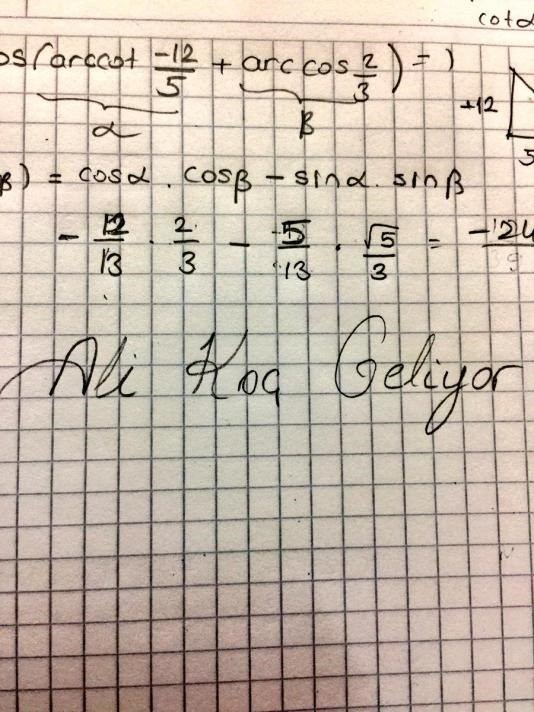 cotα
os(arccot -12/5 + arccos 2/3) = )
α β
+12
5
β) = cosα . cosβ - sinα . sinβ
- 12/13 . 2/3 - 5/13 . √5/3 =
Ali Koç Geliyor